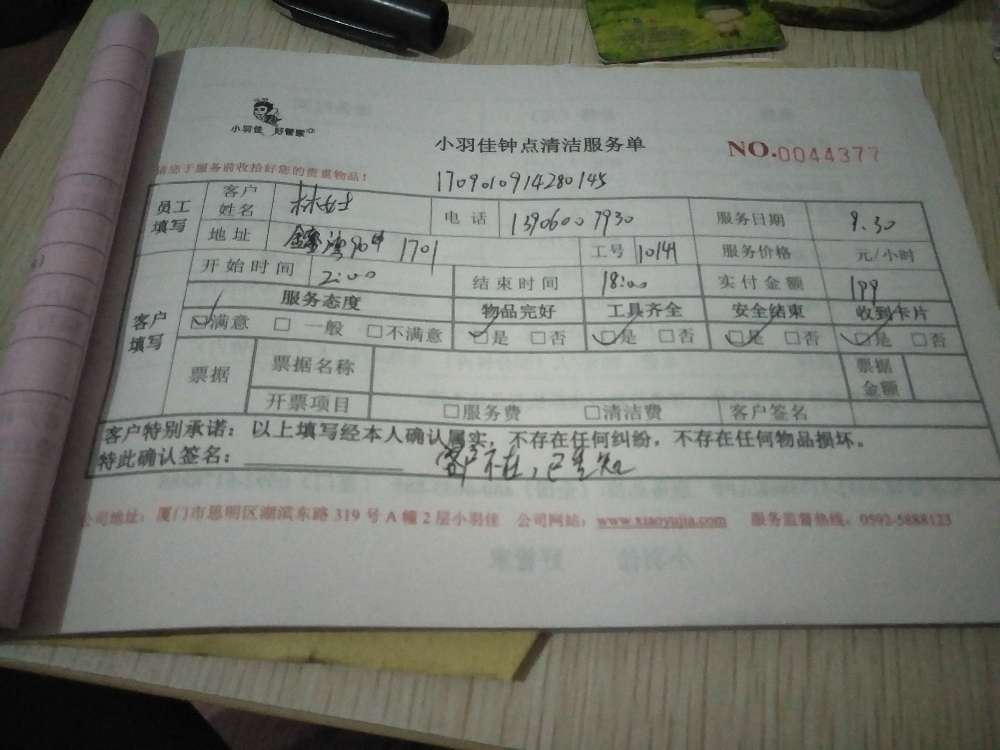 小羽佳 好管家
小羽佳钟点清洁服务单
NO.0044377
请您于服务前收拾好您的贵重物品！
170901091428 0145
员工填写 客户姓名 林女士 电话 13906007930 服务日期 9.30
地址 90# 1701 工号 10141 服务价格 元/小时
客户填写 开始时间 2:00 结束时间 18:00 实付金额 199
服务态度 物品完好 工具齐全 安全结束 收到卡片
☑满意 □一般 □不满意 ☑是 □否 ☑是 □否 ☑是 □否 ☑是 □否
票据 票据名称 票据金额
开票项目 □服务费 □清洁费 客户签名
客户特别承诺：以上填写经本人确认属实，不存在任何纠纷，不存在任何物品损坏。
特此确认签名： 客户不在，已告知
公司地址：厦门市思明区湖滨东路 319 号 A 幢 2 层小羽佳 公司网站：www.xiaoyujia.com 服务监督热线：0592-5888123